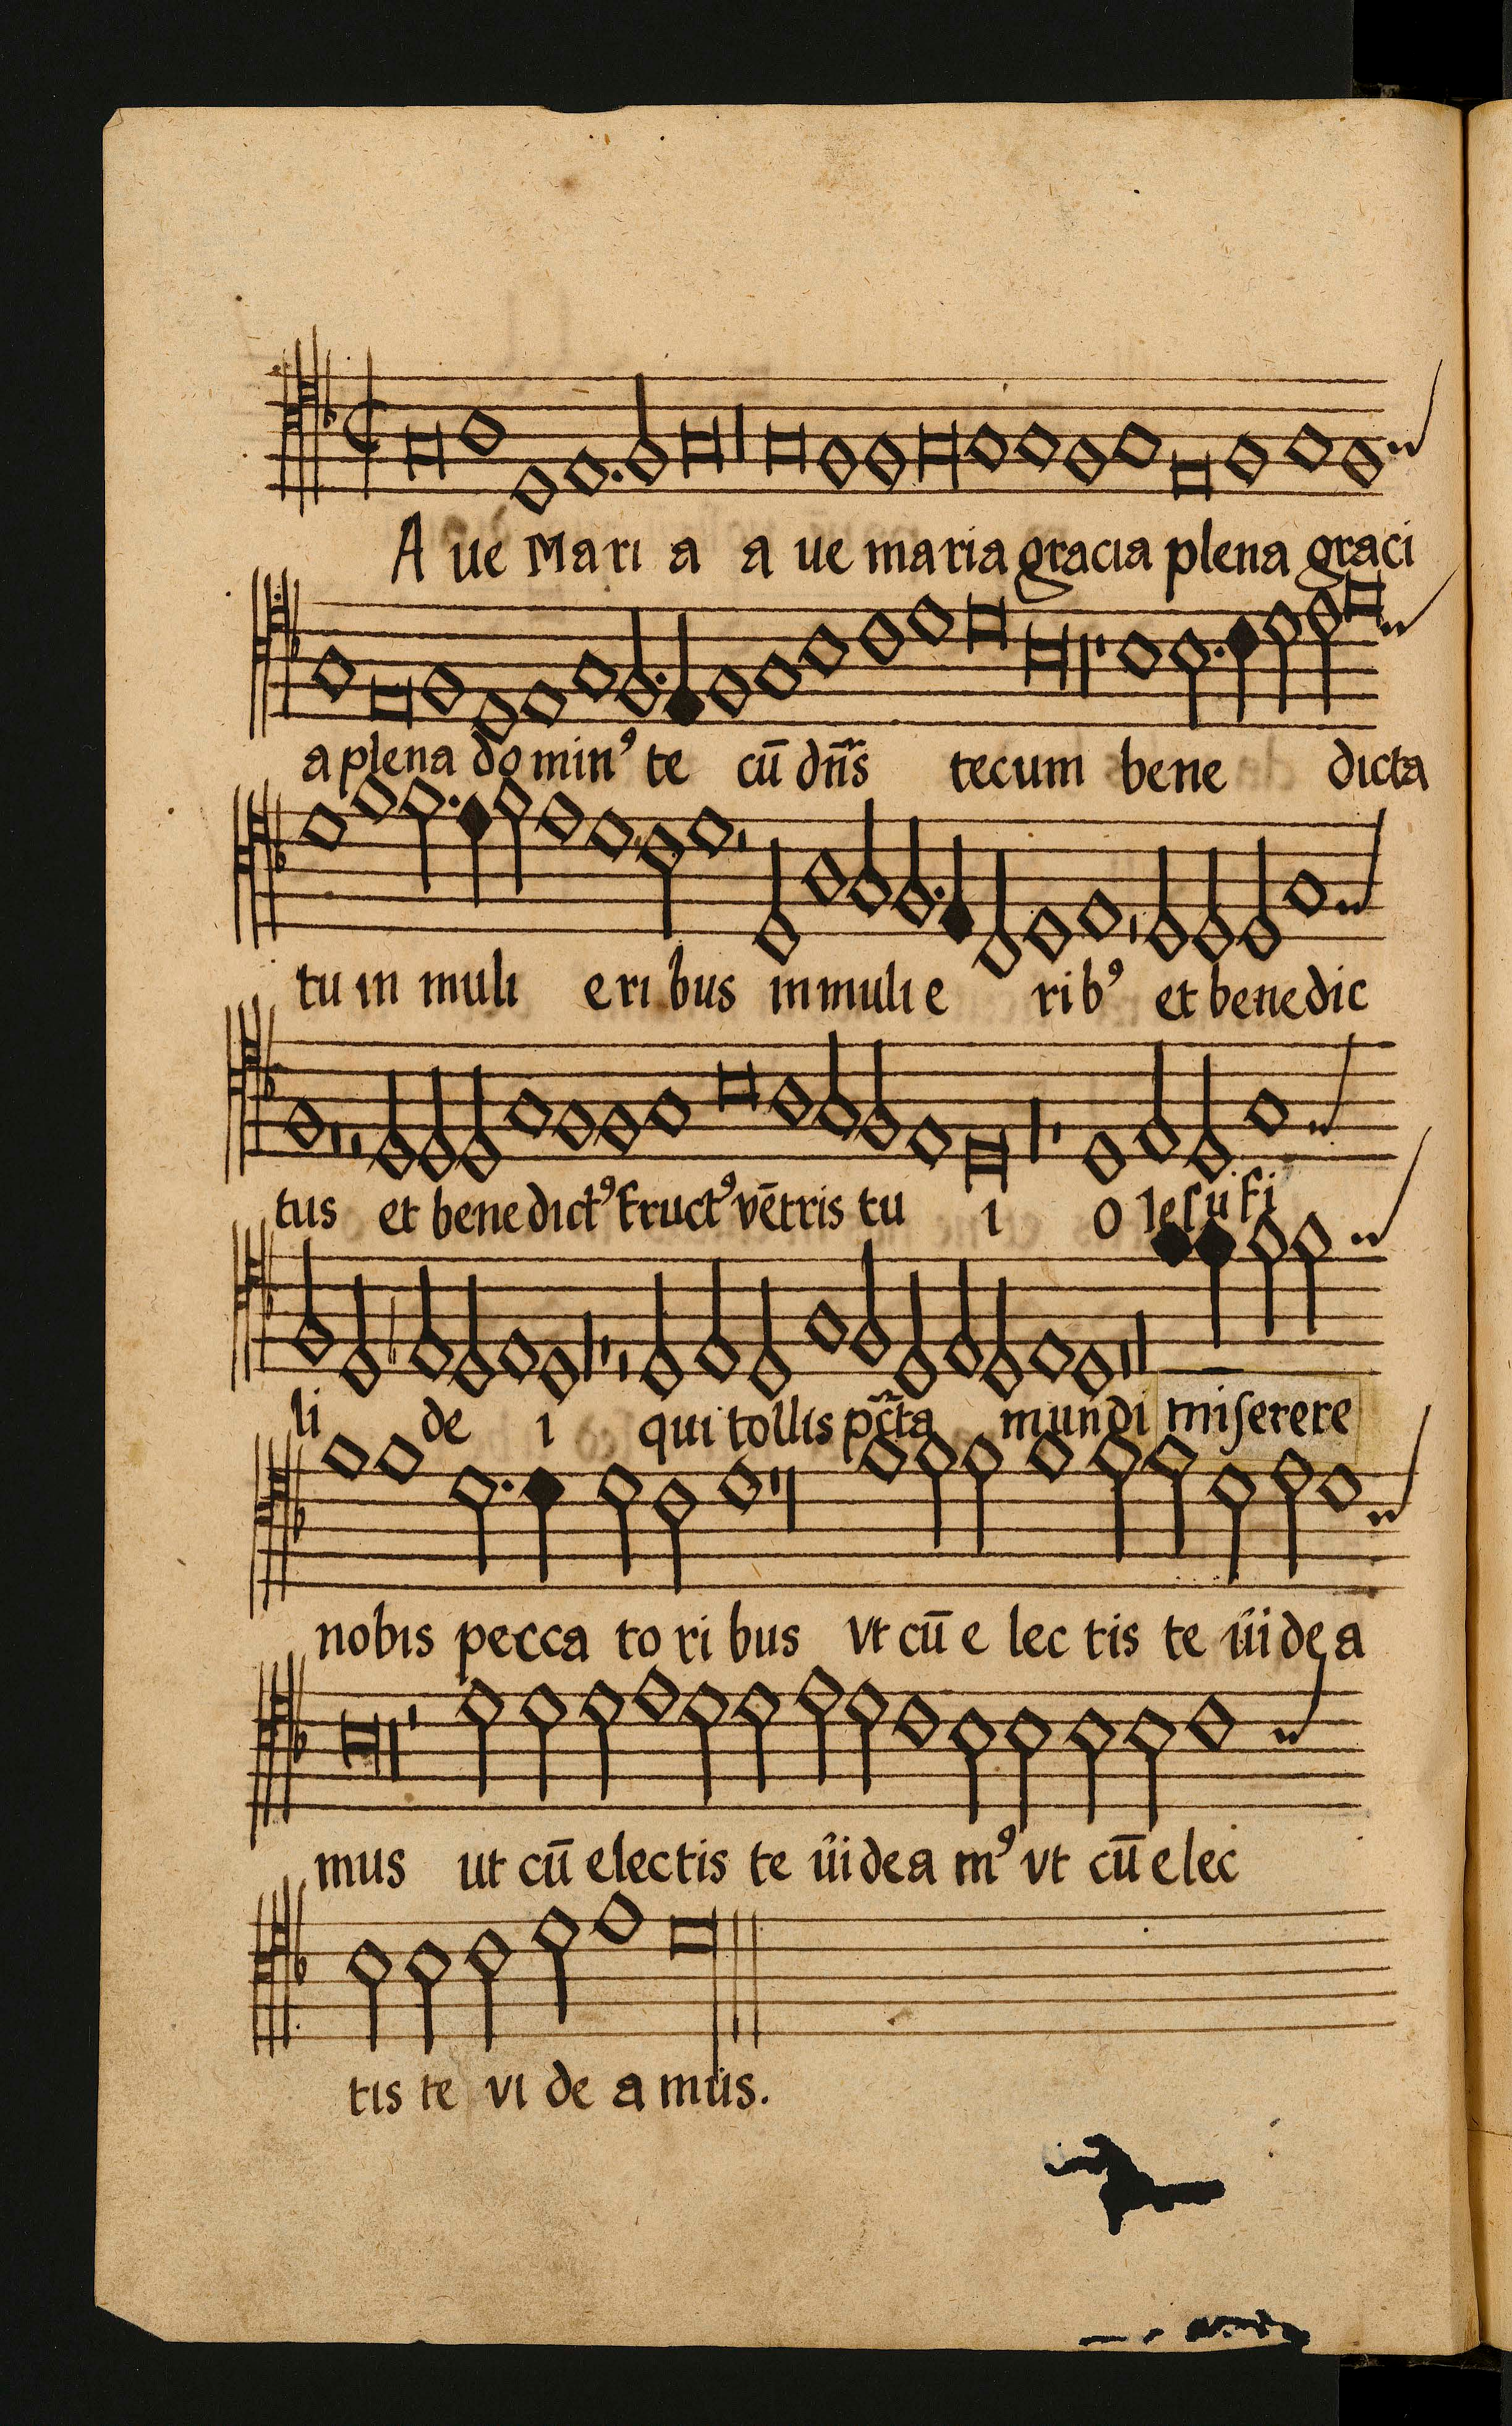 A ue Mari a a ue maria gracia plena graci
a plena do minꝰ te cū dn̄s tecum bene dicta
tu in muli eri bus in muli e ribꝰ et benedic
tus et benedictꝰ fructꝰ vētris tu i o Iesu fi
li de i qui tollis pc̄ta mundi miſerere
nobis pecca to ri bus vt cū e lec tis te uidea
mus ut cū electis te uidea mꝰ vt cū elec
tis te vi de a mus.